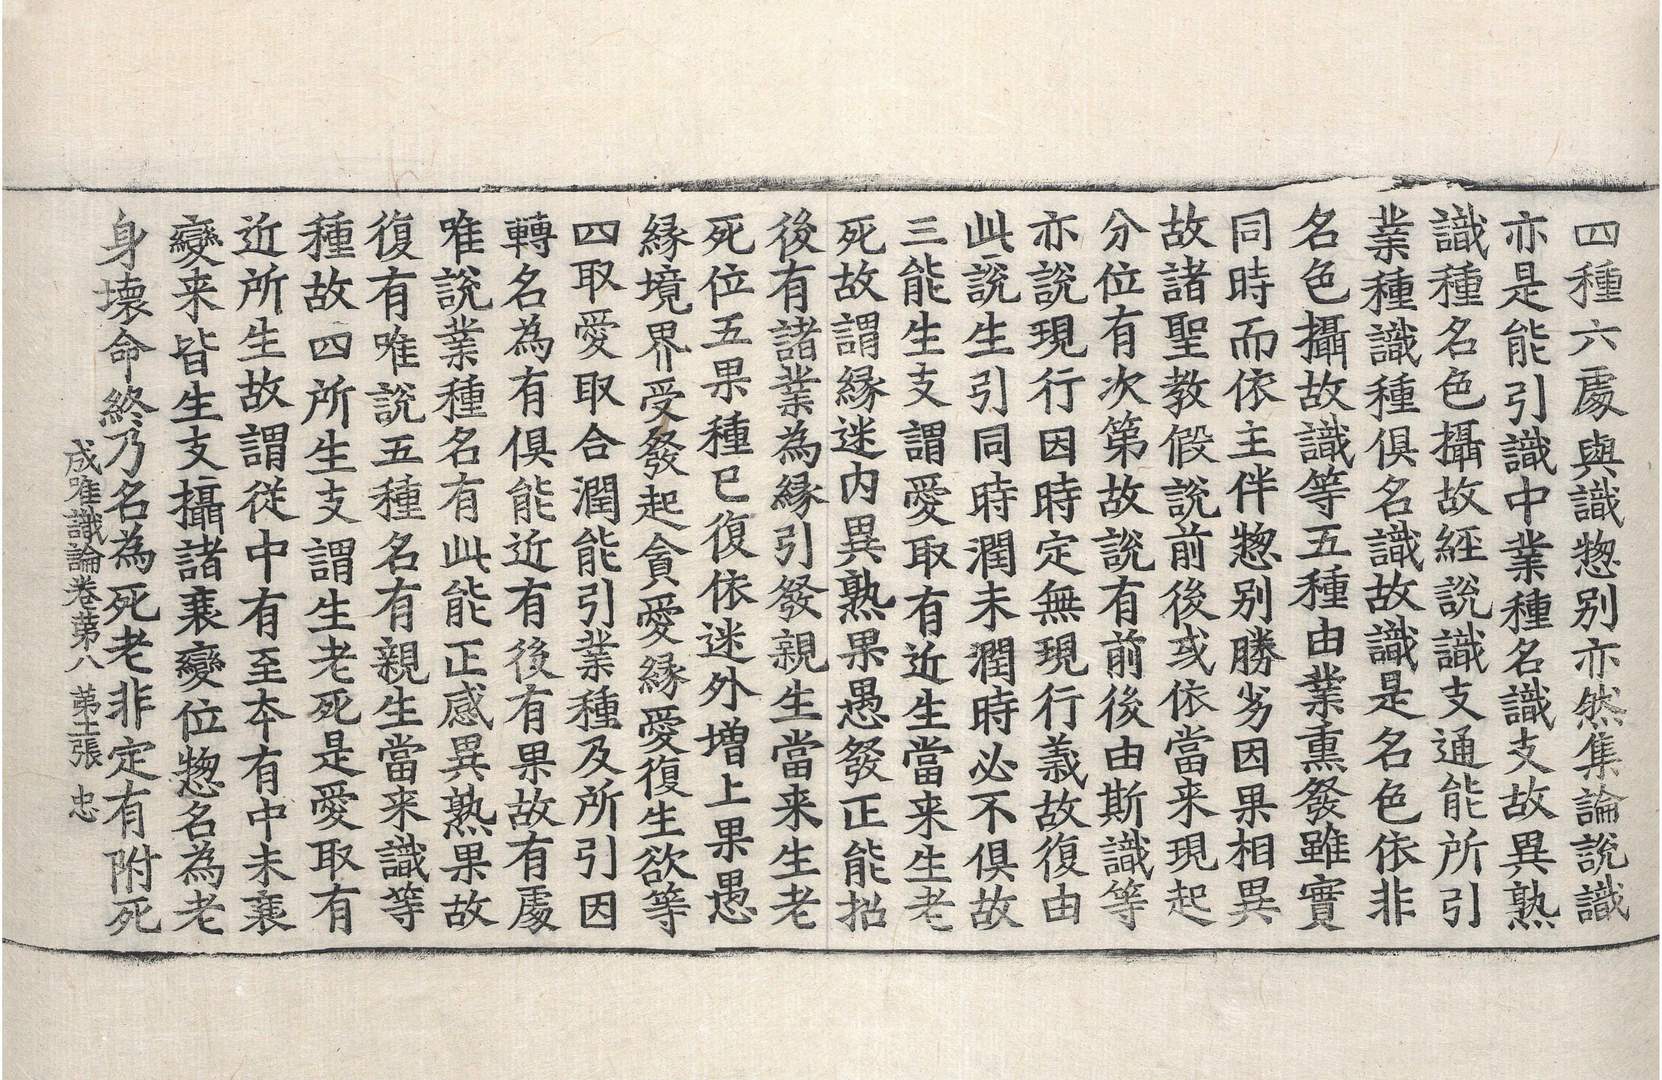 四種六處與識惣別亦然集論說識
亦是能引識中業種名識支故異熟
識種名色攝故經說識支通能所引
業種識種俱名識故識是名色依非
名色攝故識等五種由業熏發雖實
同時而依主伴惣別勝劣因果相異
故諸聖教假說前後或依當来現起
分位有次第故說有前後由斯識等
亦說現行因時定無現行義故復由
此說生引同時潤未潤時必不俱故
三能生支謂愛取有近生當来生老
死故謂縁迷內異熟果愚發正能招
後有諸業為縁引發親生當来生老
死位五果種已復依迷外增上果愚
縁境界受發起貪愛縁愛復生欲等
四取愛取合潤能引業種及所引因
轉名為有俱能近有後有果故有處
唯說業種名有此能正感異熟果故
復有唯說五種名有親生當来識等
種故四所生支謂生老死是愛取有
近所生故謂從中有至本有中未衰
變来皆生支攝諸衰變位惣名為老
身壞命終乃名為死老非定有附死
成唯識論卷第八　苐十二張　忠